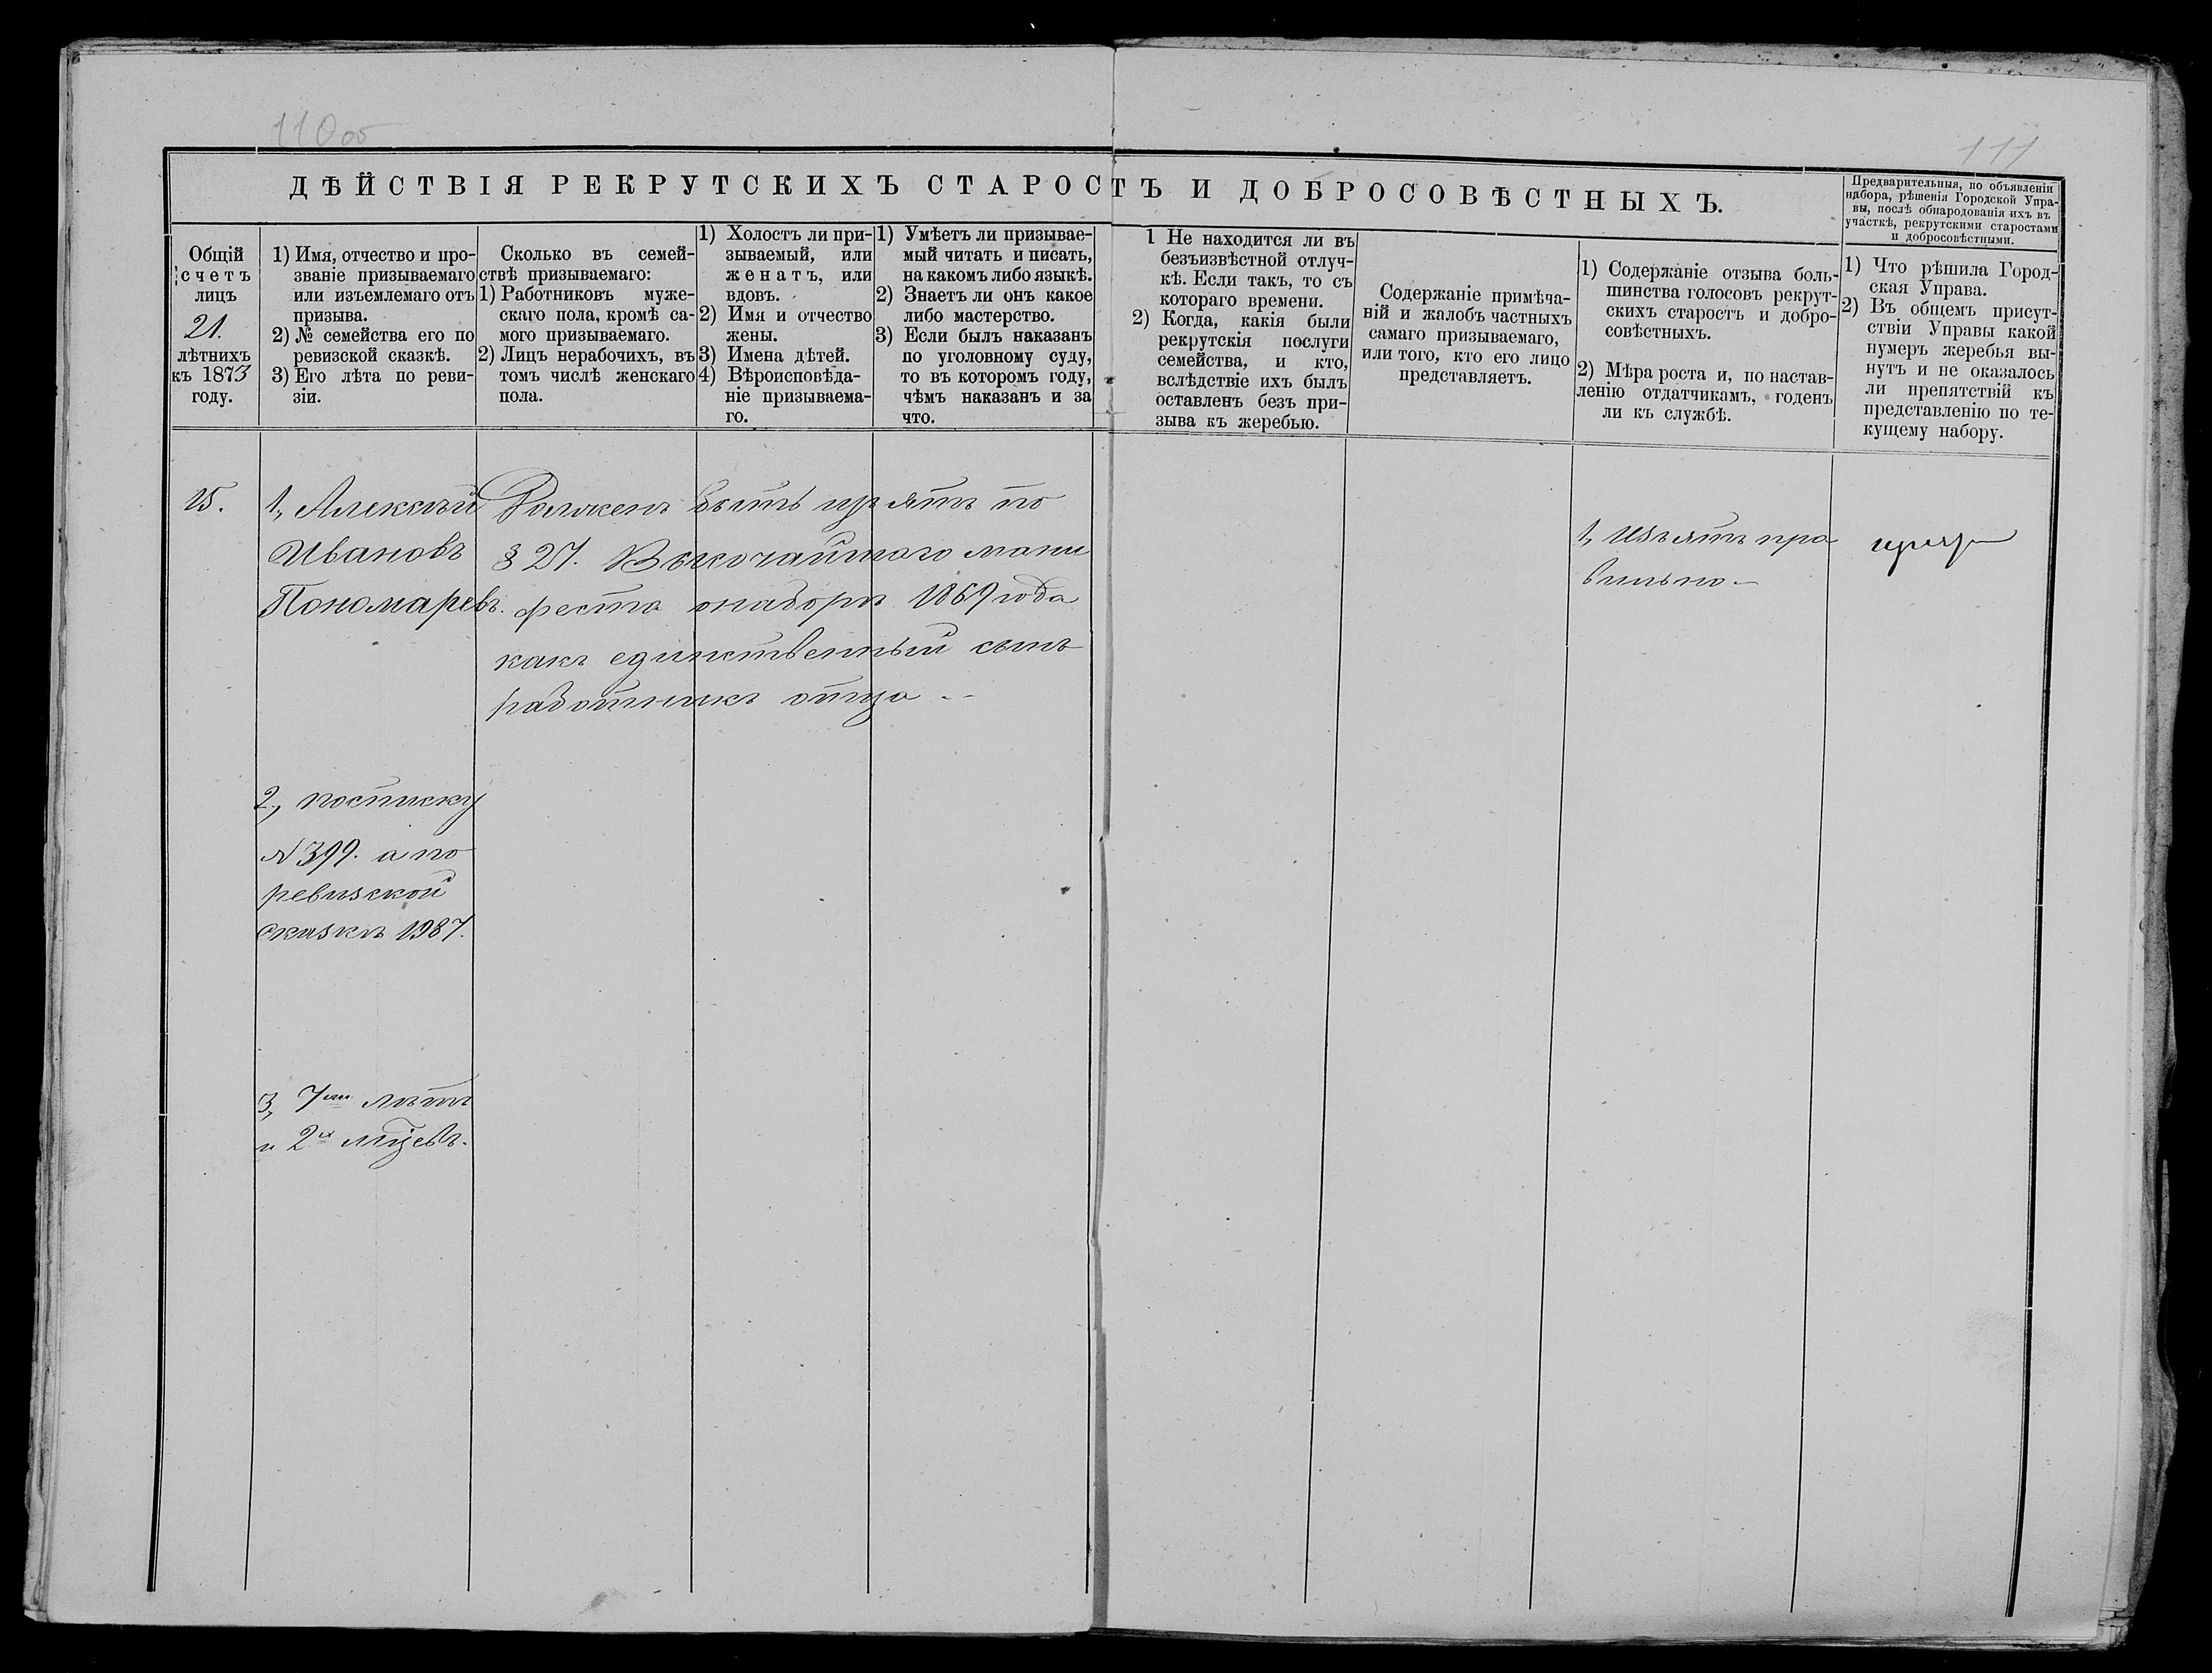 110об
111
ДѢЙСТВІЯ РЕКРУТСКИХЪ СТАРОСТЪ И ДОБРОСОВѢСТНЫХЪ.
Предварительныя, по объявленіи
набора, рѣшенія Городской Упра-
вы, послѣ обнародованія ихъ въ
участкѣ, рекрутскими старостами
и добросовѣстными.
Общій
счетъ
лицъ
21.
лѣтнихъ
къ 1873
году.
1) Имя, отчество и про-
званіе призываемаго
или изъемлемаго отъ
призыва.
2) № семейства его по
ревизской сказкѣ.
3) Его лѣта по реви-
зіи.
Сколько въ семей-
ствѣ призываемаго:
1) Работниковъ муже-
скаго пола, кромѣ са-
мого призываемаго.
2) Лицъ нерабочихъ, въ
томъ числѣ женскаго
пола.
1) Холостъ ли при-
зываемый, или
женатъ, или
вдовъ.
2) Имя и отчество
жены.
3) Имена дѣтей.
4) Вѣроисповѣда-
ніе призываема-
го.
1) Умѣетъ ли призывае-
мый читать и писать,
на какомъ либо языкѣ.
2) Знаетъ ли онъ какое
либо мастерство.
3) Если былъ наказанъ
по уголовному суду,
то въ которомъ году,
чѣмъ наказанъ и за
что.
1 Не находится ли въ
безъизвѣстной отлуч-
кѣ. Если такъ, то съ
котораго времени.
2) Когда, какія были
рекрутскія послуги
семейства, и кто,
вслѣдствіе ихъ былъ
оставленъ безъ при-
зыва къ жеребью.
Содержаніе примѣча-
ній и жалобъ частныхъ
самаго призываемаго,
или того, кто его лицо
представляетъ.
1) Содержаніе отзыва боль-
шинства голосовъ рекрут-
скихъ старостъ и добро-
совѣстныхъ.
2) Мѣра роста и, по настав-
ленію отдатчикамъ, годенъ
ли къ службѣ.
1) Что рѣшила Город-
ская Управа.
2) Въ общемъ присут-
ствіи Управы какой
нумеръ жеребья вы-
нутъ и не оказалось
ли препятствій къ
представленію по те-
кущему набору.
15.
1, Алексѣй
Ивановъ
Пономаревъ.
2, посписку
№ 399. а по
ревизской
сказкѣ 1987.
3, 7ми лѣтъ
и 2хъ мцевъ.
Долженъ быть изъятъ по
§ 27. Высочайшаго мани
феста онаборѣ 1869 года
какъ единственный сынъ
работникъ отца -
1, Изъятъ пра
вильно. -